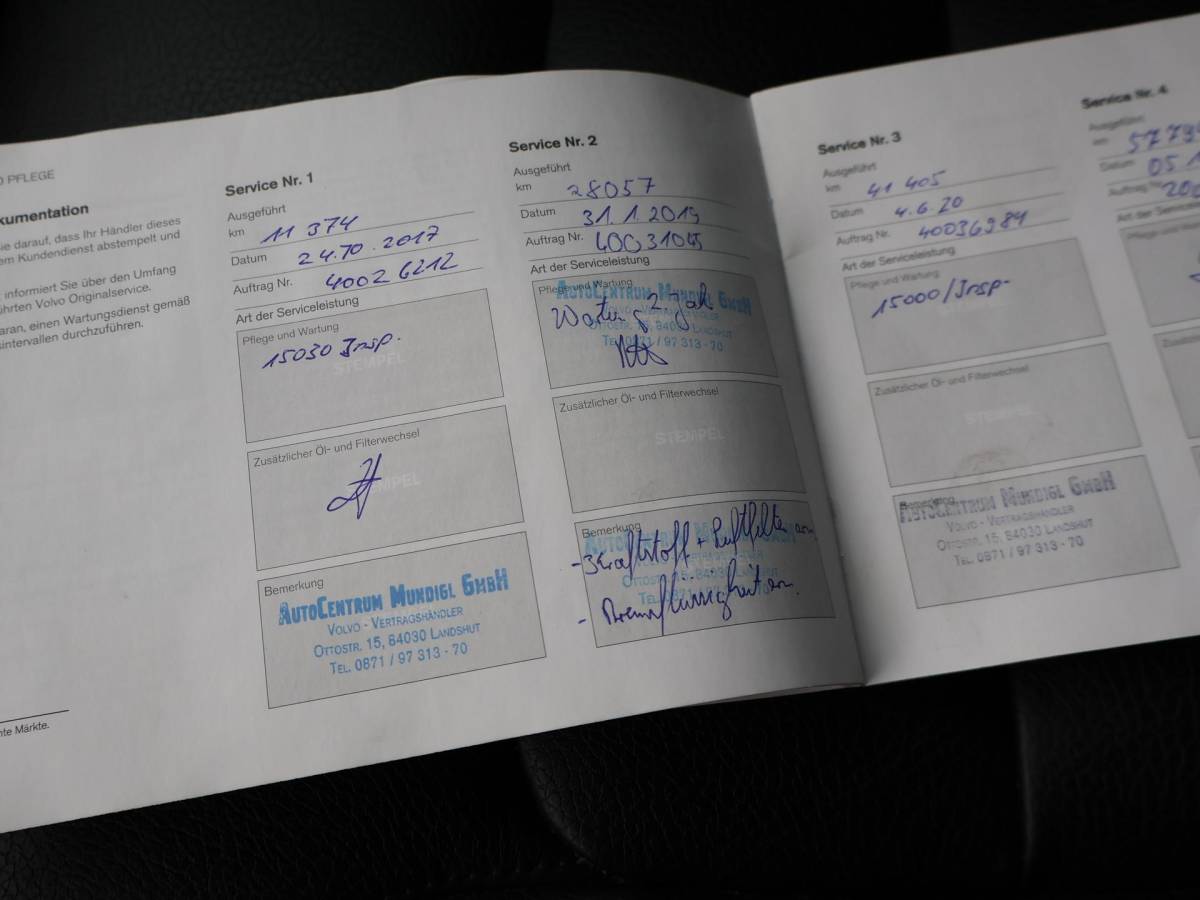 D PFLEGE
kumentation
ie darauf, dass Ihr Händler dieses
em Kundendienst abstempelt und
informiert Sie über den Umfang
ührten Volvo Originalservice.
aran, einen Wartungsdienst gemäß
sintervallen durchzuführen.
nte Märkte.
Service Nr. 1
Ausgeführt
km 11 374
Datum 24.10.2017
Auftrag Nr. 40026212
Art der Serviceleistung
Pflege und Wartung
15030 Insp.
STEMPEL
Zusätzlicher Öl- und Filterwechsel
MPEL
Bemerkung
AUTOCENTRUM MUNDIGL GMBH
VOLVO - VERTRAGSHÄNDLER
OTTOSTR. 15, 84030 LANDSHUT
TEL. 0871 / 97 313 - 70
Service Nr. 2
Ausgeführt
km 28057
Datum 31.1.2019
Auftrag Nr. 40031045
Art der Serviceleistung
Pflege und Wartung
AUTOCENTRUM MUNDIGL GMBH
Wartung 2 Jah
TEL. 0871 / 97 313 - 70
Zusätzlicher Öl- und Filterwechsel
STEMPEL
Bemerkung
- Kraftstoff + Luftfilter
- Bremsflüssigkeit
Service Nr. 3
Ausgeführt
km 41 405
Datum 4.6.20
Auftrag Nr. 40036984
Art der Serviceleistung
Pflege und Wartung
15000/Insp-
Zusätzlicher Öl- und Filterwechsel
STEMPEL
Bemerkung
AUTOCENTRUM MUNDIGL GMBH
VOLVO - VERTRAGSHÄNDLER
OTTOSTR. 15, 84030 LANDSHUT
TEL. 0871 / 97 313 - 70
Service Nr. 4
Ausgeführt
km 5779
Datum 05.1
Auftrag Nr. 200
Art der Servic
Pflege und Wa
Zusätzlic